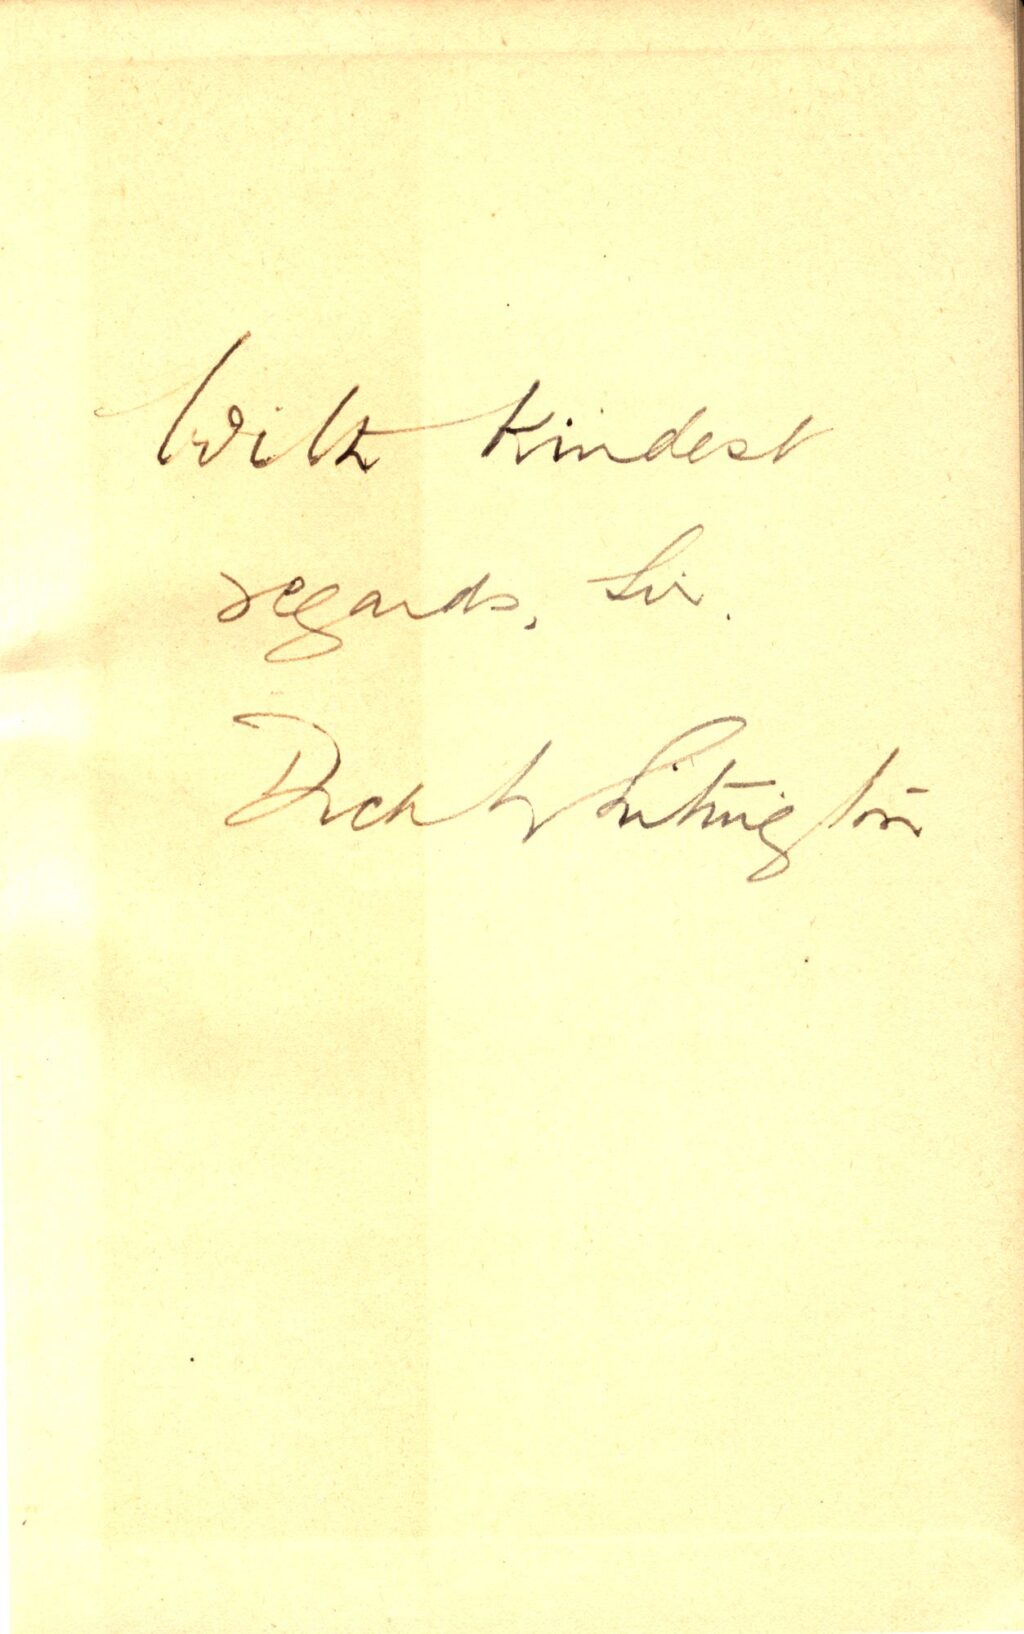 With Kindest
regards, Sir.
Dick Whittington